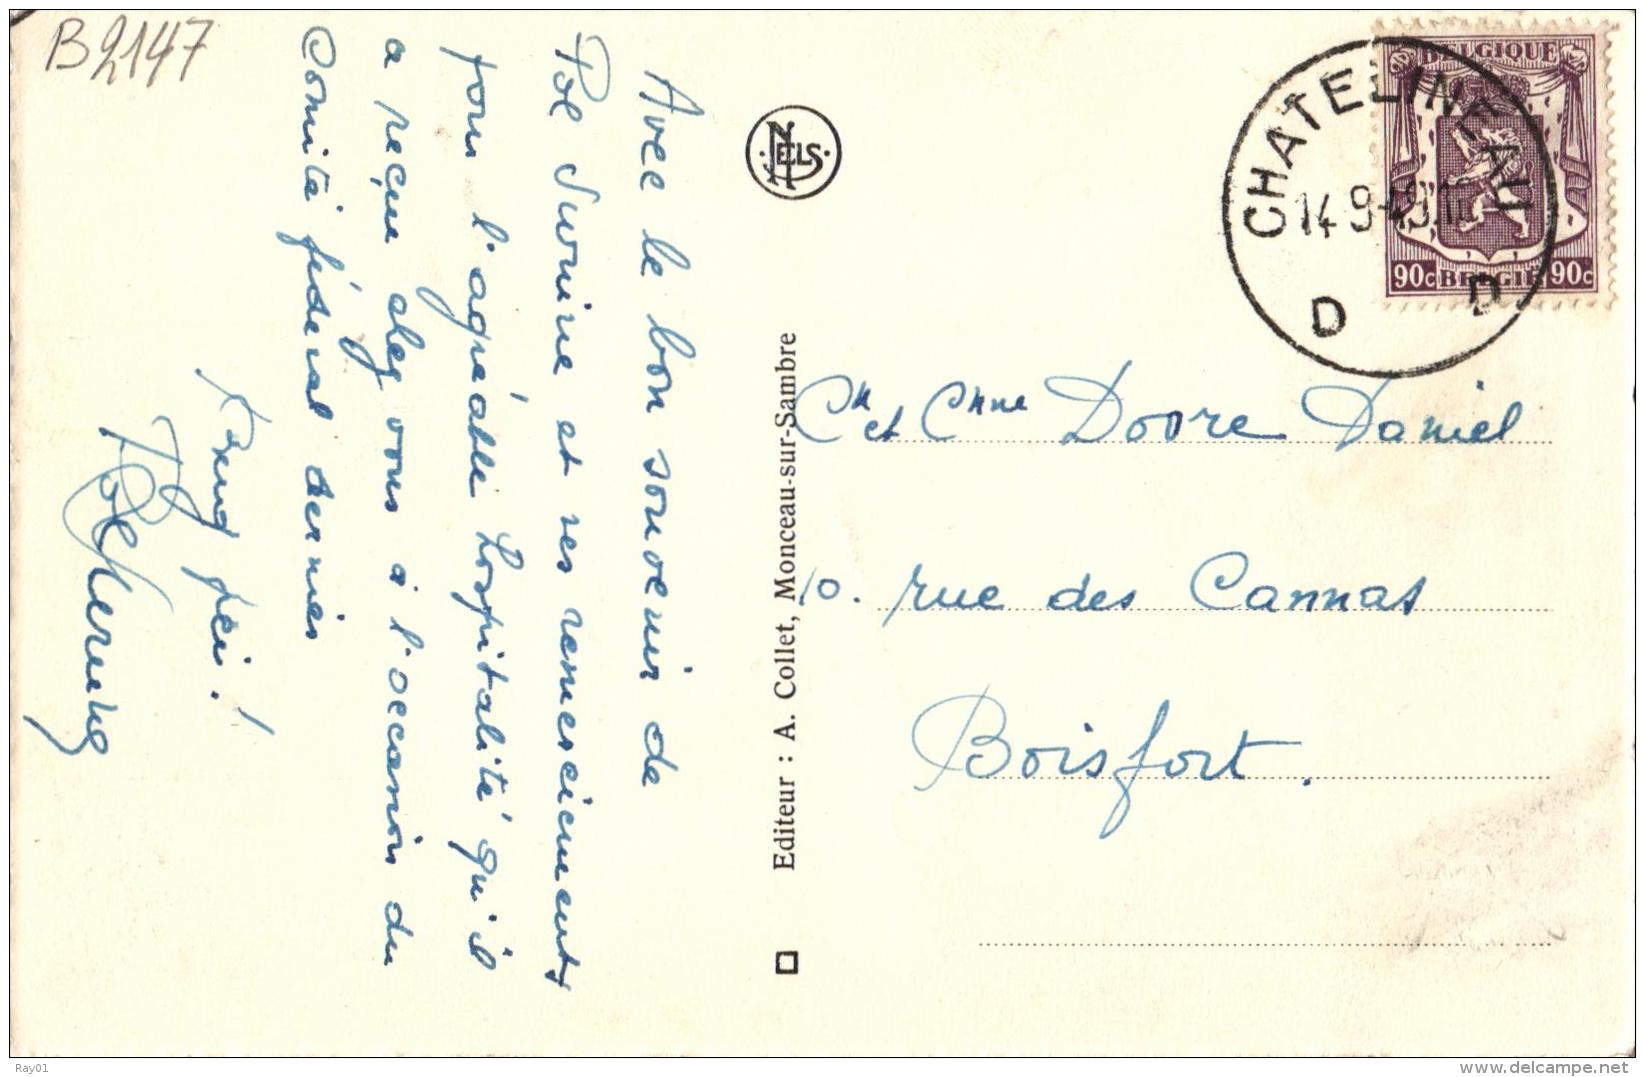 B2147
Avec le bon souvenir de
Pol et ses remerciements
pour l'agréable hospitalité qu'il
a reçue chez vous à l'occasion du
Comité fédéral dernier
Bend frei !
Pol
NELS
Editeur : A. Collet, Monceau-sur-Sambre
BELGIQUE
90c BELGIE 90c
CHATELINEAU
14 9
D D
Cn et Cmne Doore Daniel
10. rue des Cannas
Boisfort.
Ray01
delcampe.net